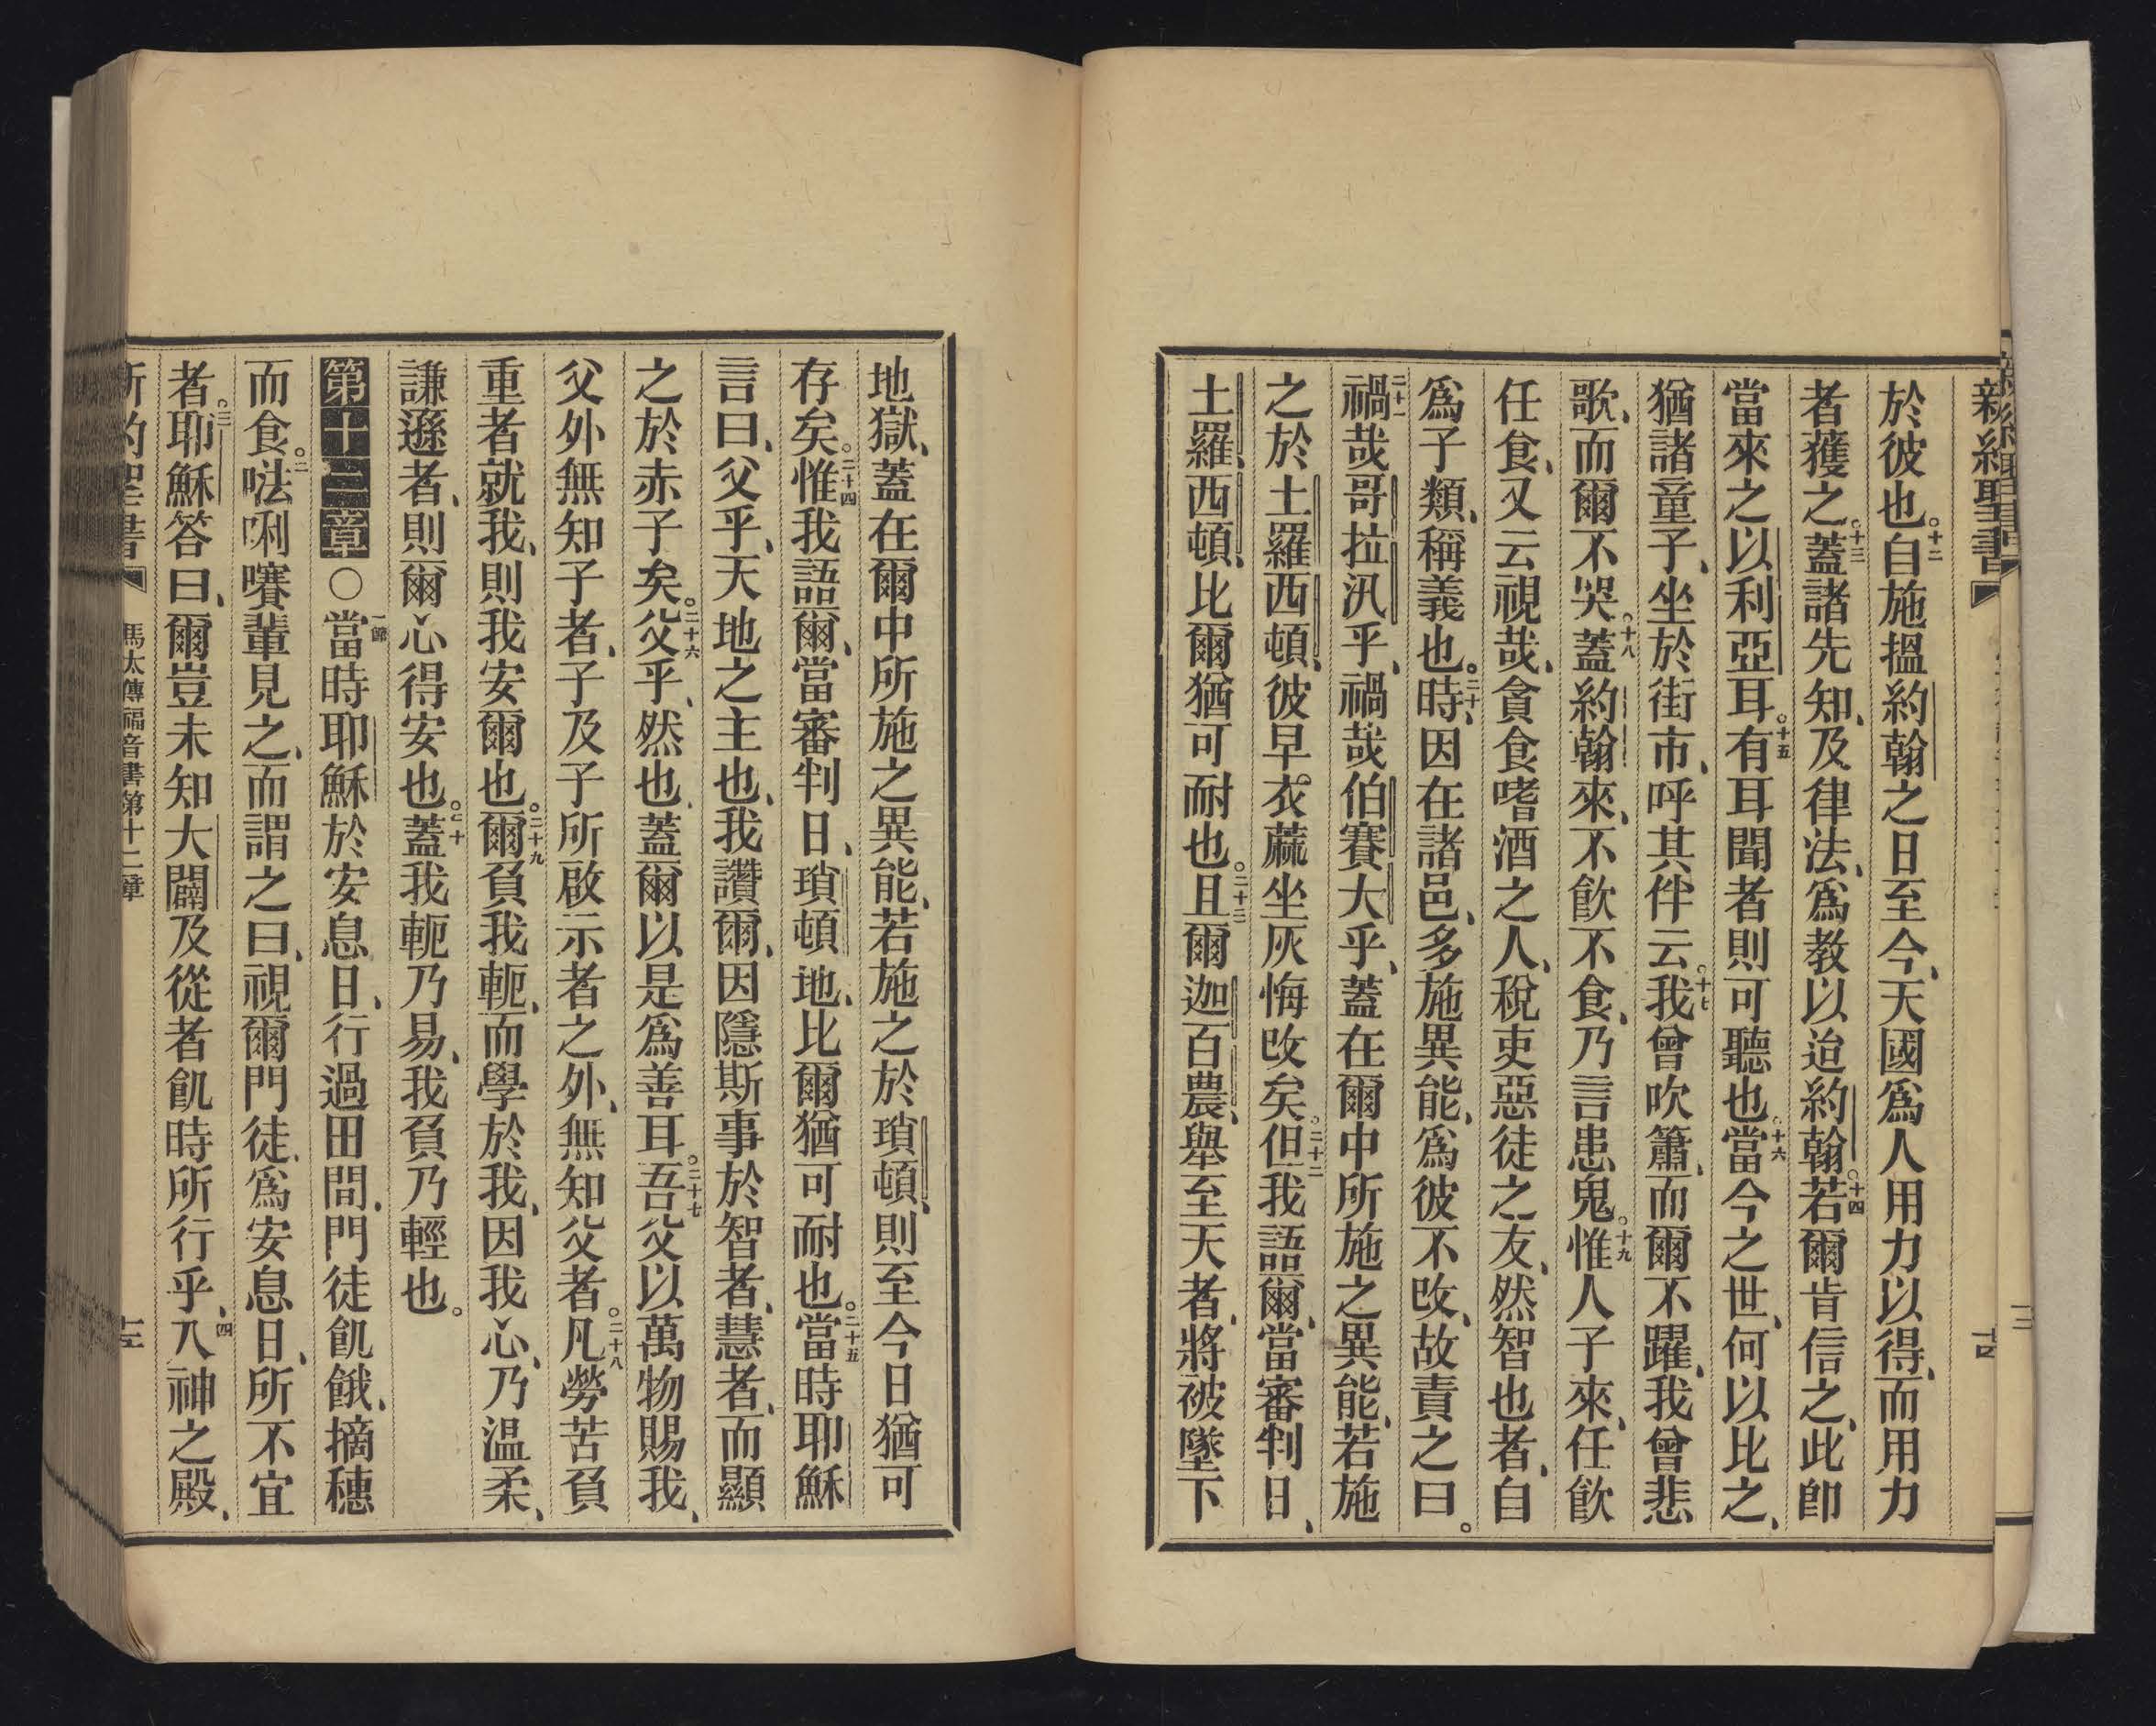 新約聖書
於彼也。十二自施搵約翰之日至今、天國爲人用力以得、而用力
者獲之、十三蓋諸先知、及律法、爲教以迨約翰。十四若爾肯信之、此卽
當來之以利亞耳。十五有耳聞者則可聽也。十六當今之世、何以比之、
猶諸童子、坐於街市、呼其伴云。十七我曾吹簫、而爾不躍、我曾悲
歌、而爾不哭。十八蓋約翰來、不飮不食、乃言患鬼。十九惟人子來、任飮
任食、又云視哉、貪食嗜酒之人、稅吏惡徒之友、然智也者、自
爲子類、稱義也。二十時、因在諸邑、多施異能、爲彼不改、故責之曰。
二十一禍哉哥拉汛乎、禍哉伯賽大乎、蓋在爾中所施之異能、若施
之於土羅西頓、彼早衣蔴坐灰悔改矣。二十二但我語爾、當審判日、
土羅、西頓、比爾猶可耐也。二十三且爾迦百農、舉至天者、將被墜下
地獄、蓋在爾中所施之異能、若施之於瑣頓、則至今日猶可
存矣。二十四惟我語爾、當審判日、瑣頓地、比爾猶可耐也。二十五當時耶穌
言曰、父乎、天地之主也、我讚爾、因隱斯事於智者、慧者、而顯
之於赤子矣。二十六父乎、然也、蓋爾以是爲善耳。二十七吾父以萬物賜我、
父外無知子者、子及子所啟示者之外、無知父者。二十八凡勞苦負
重者就我、則我安爾也。二十九爾負我軛、而學於我、因我心、乃溫柔、
謙遜者、則爾心得安也。三十蓋我軛乃易、我負乃輕也。
第十二章○一節當時耶穌於安息日、行過田間、門徒飢餓、摘穗
而食。二㗒唎㘔輩見之、而謂之曰、視爾門徒、爲安息日、所不宜
者。三耶穌答曰、爾豈未知大闢及從者飢時所行乎、四入神之殿、
新約聖書 馬太傳福音書第十二章